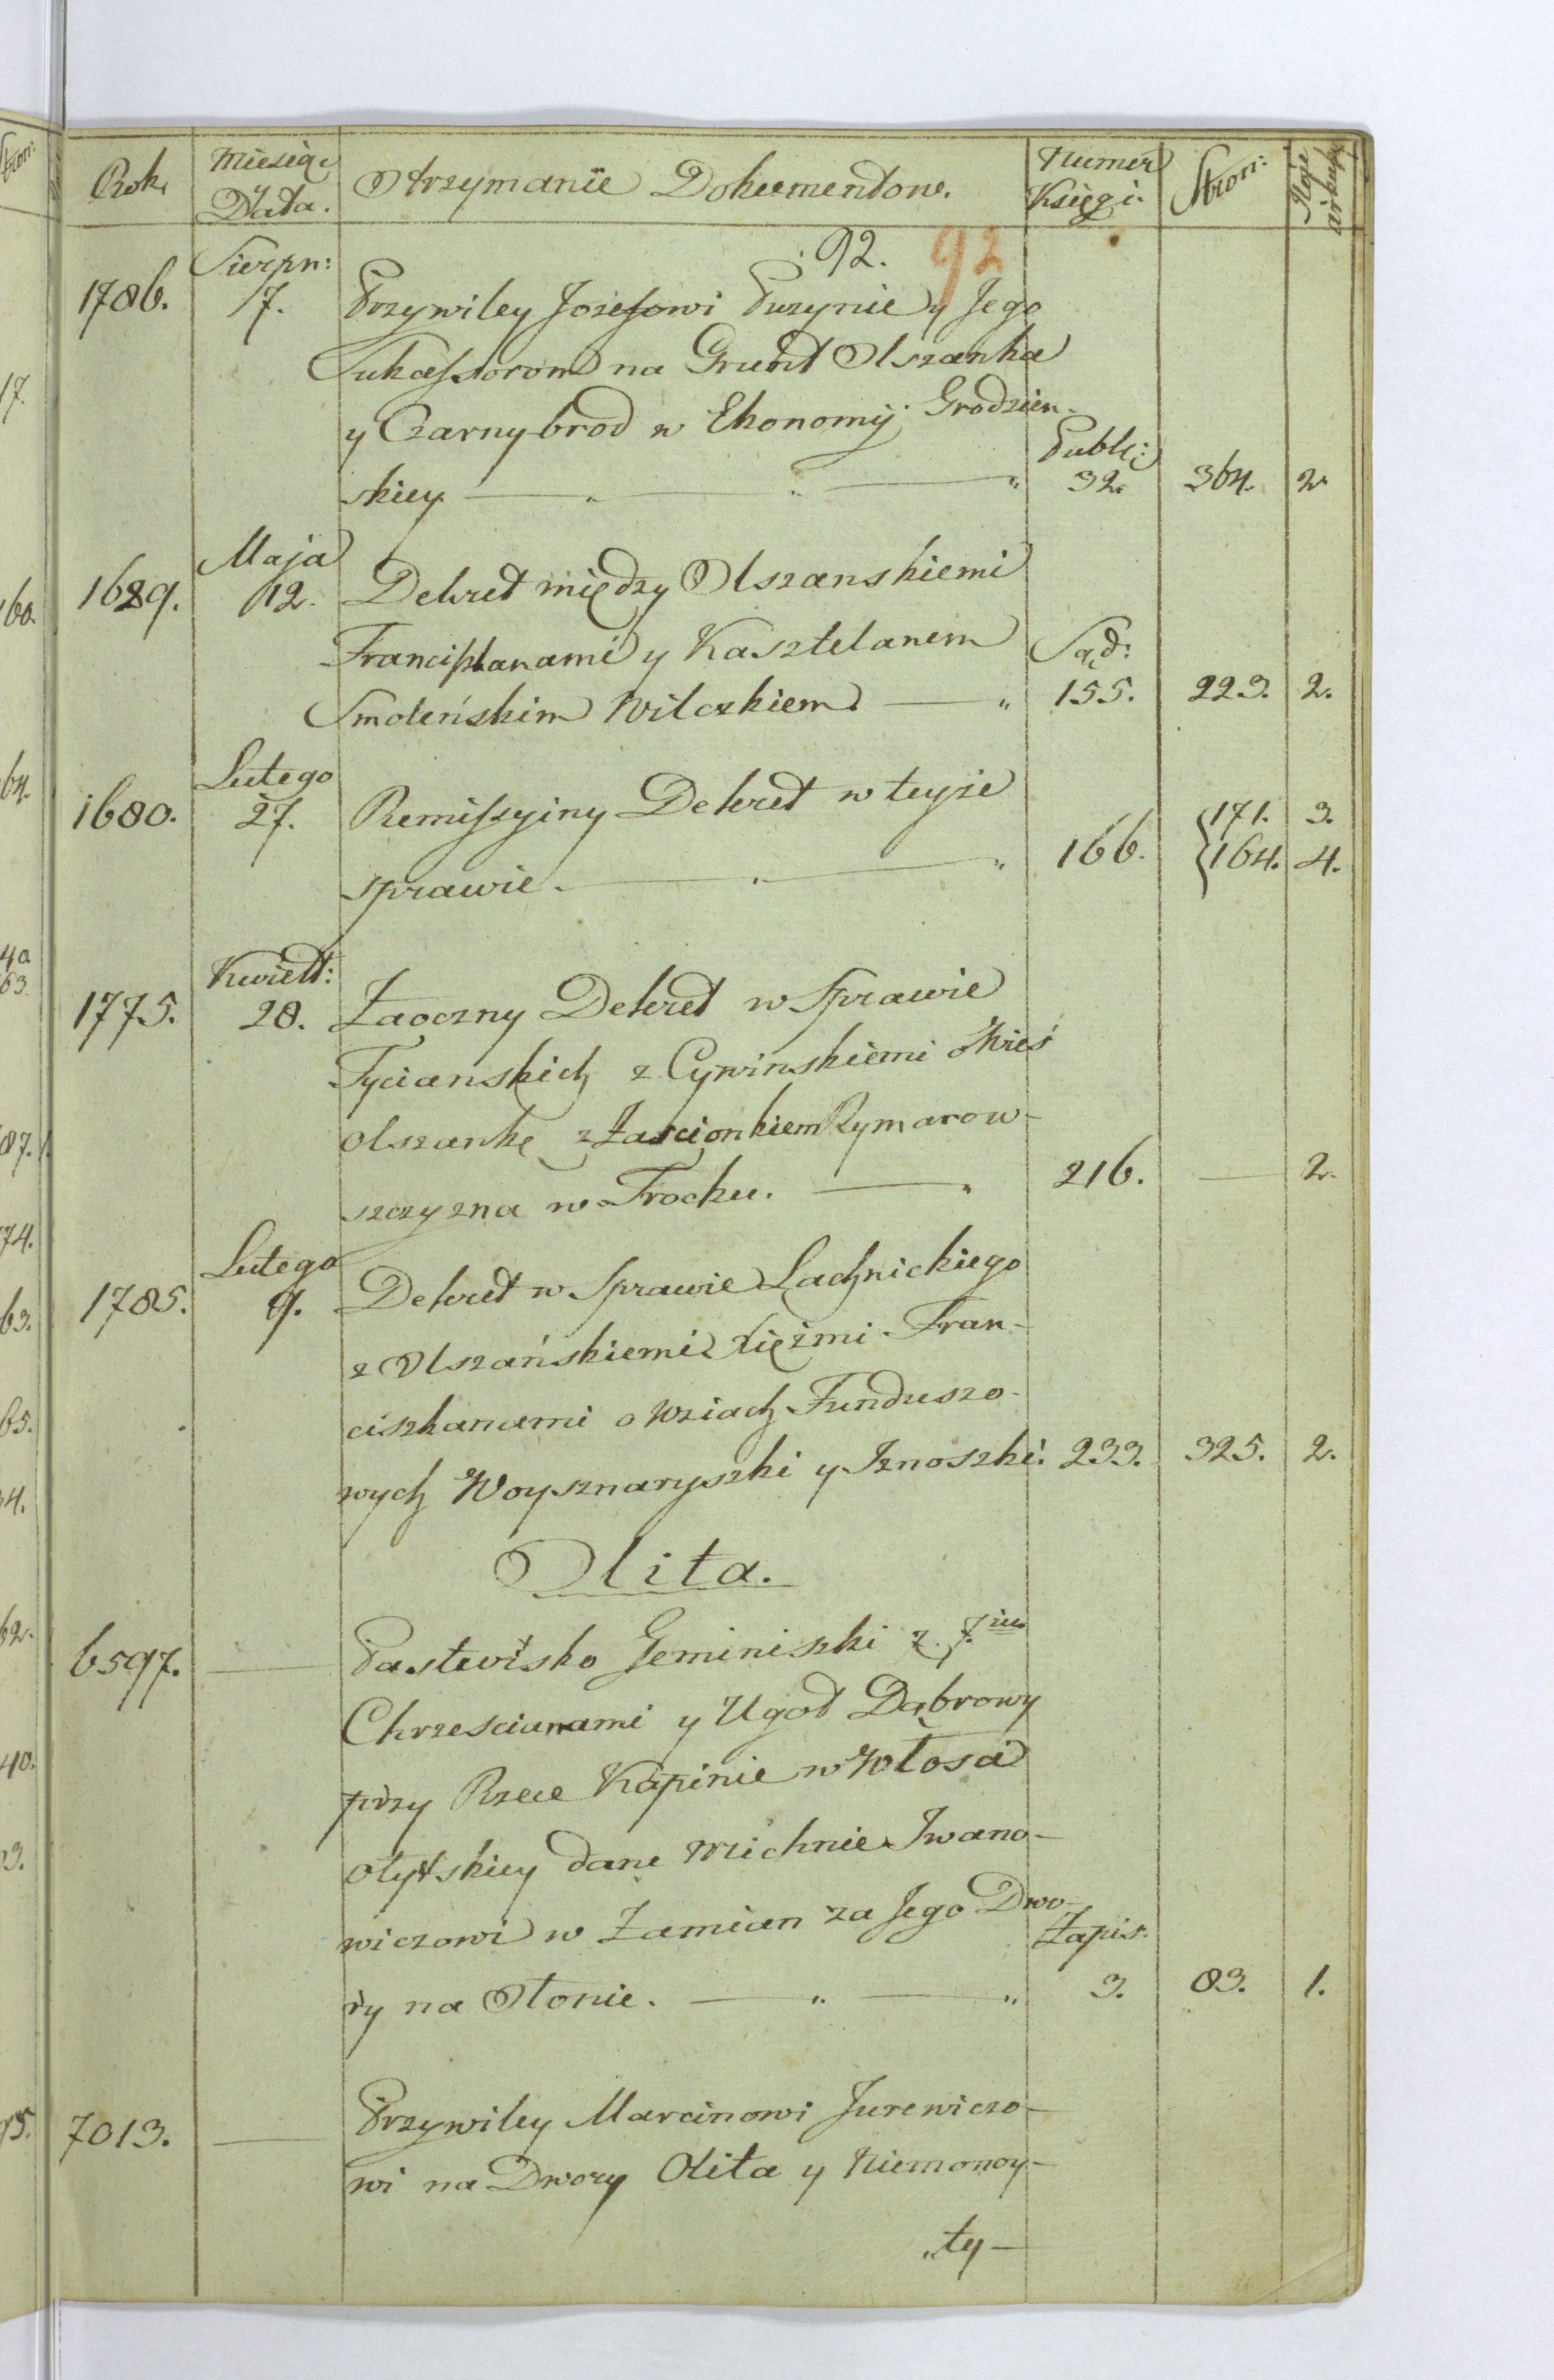 Rok. Miesiąc y Data. Otrzymanie Dokumentow. Numer Księgi. Stron: Ilość arkuszy
92. 92
1786. Sierpn: 7. Przywiley Jozefowi Puzynie y Jego
Sukcessorom na Grunt Olszanka
y Czarnybrod w Ekonomij Grodzien-
skiey Publ: 32. 364. 2
1689. Maja 12. Dekret między Olszanskiemi
Franciszkanami y Kasztelanem
Smoleńskim Wilczkiem. Sąd: 155. 223. 2.
1680. Lutego 27. Remissyiny Dekret w teyże
sprawie. 166. 171. 3.
164. 4.
1775. Kwiett: 28. Zaoczny Dekret w Sprawie
Tycianskich z Cywinskiemi o Wieś
Olszankę z Zascionkiem Rymarow-
szczyzna w Trocku. 216. — 2.
1785. Lutego 9. Dekret w Sprawie Lachnickiego
z Olszańskiemi Xięźmi Fran-
ciszkanami o Wsiach Funduszo-
wych Woysznaryszki y Iznoszki. 233. 325. 2.
Olita.
6597. — Pastewisko Geminiszki z 7.iu
Chrzescianami y Ugod Dąbrowy
przy Rzece Kapinie w Włosci
Olytskiey dane Michnie Iwano-
wiczowi w Zamian za Jego Dwo-
ry na Słonie. Zapis. 3. 83. 1.
7013. — Przywiley Marcinowi Jurewiczo-
wi na Dwory Olita y Niemonoy-
„ty—